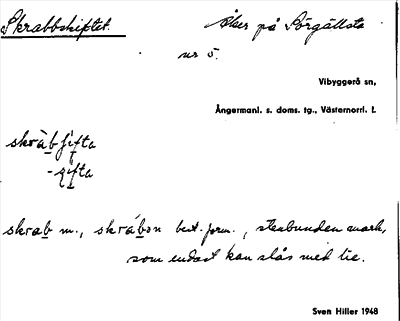 Skrabbskiftet. Åker på Sörgällsta
nr 5.
Vibyggerå sn,
Ångermanl. s. doms. tg., Västernorrl. l.
skràb
skrab m., skrábən best. form., stenbunden mark,
som endast kan slås med lie.
Sven Hiller 1948